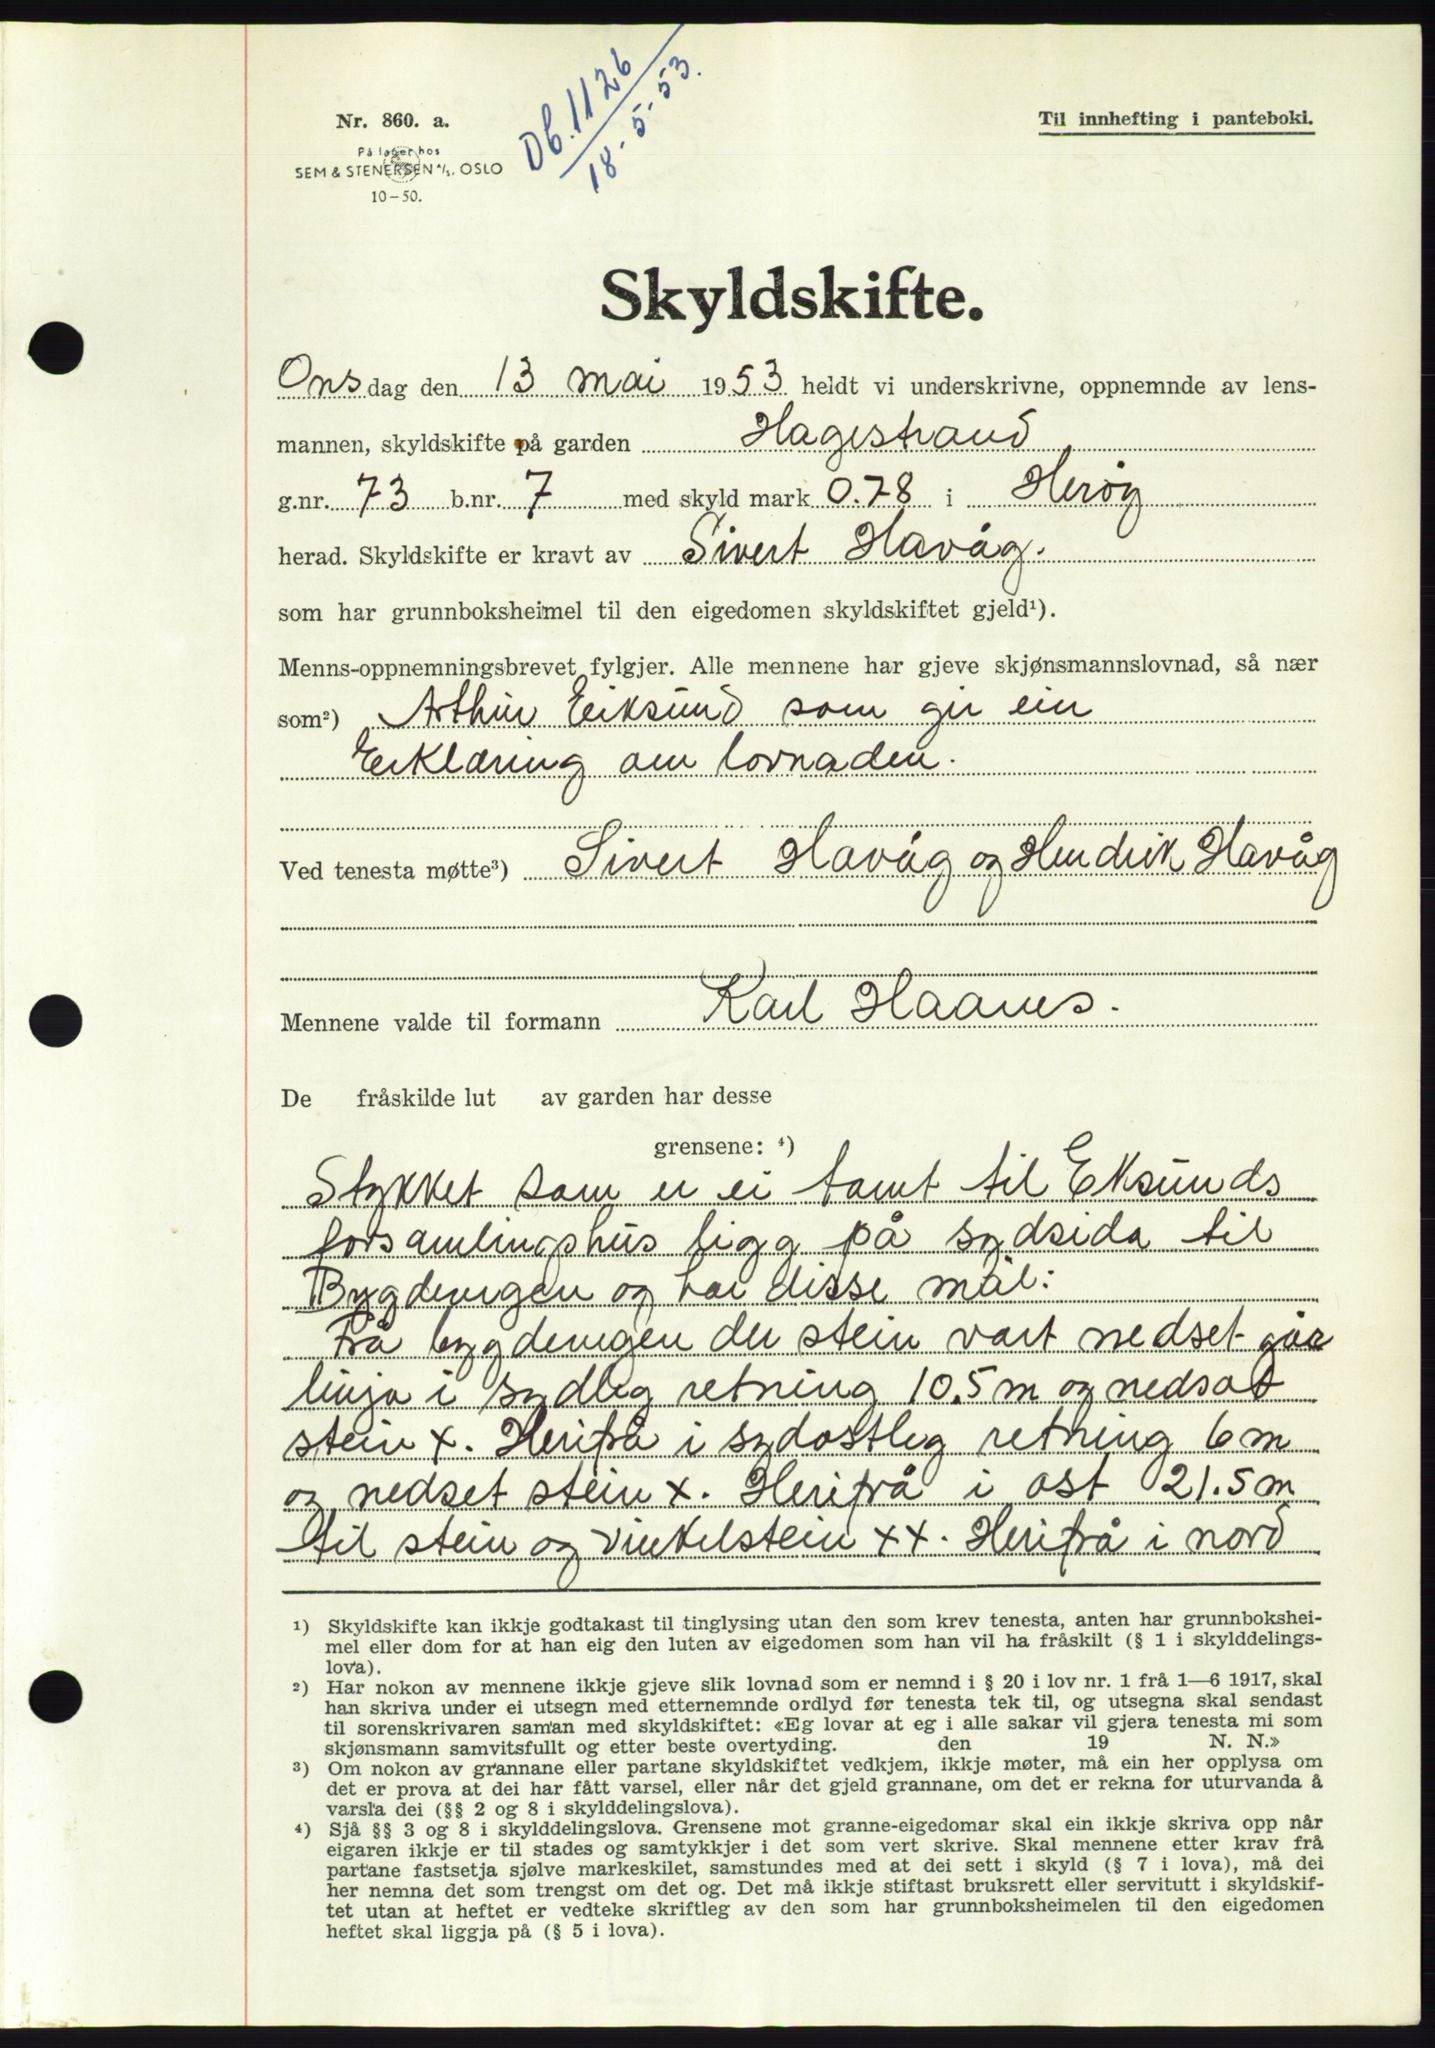 Db. 1126
18-5-53.
Nr. 860. a.
På lager hos
SEM & STENERSEN A/S. OSLO
10-50.
Til innhefting i panteboki.
Skyldskifte.
Onsdag den 13 mai 1953 heldt vi underskrivne, oppnemnde av lens-
mannen, skyldskifte på garden Hagestrand
g.nr. 73 b.nr. 7 med skyld mark 0.78 i Herøy
herad. Skyldskifte er kravt av Sivert Havåg.
som har grunnboksheimel til den eigedomen skyldskiftet gjeld¹).
Menns-oppnemningsbrevet fylgjer. Alle mennene har gjeve skjønsmannslovnad, så nær
som²) Arthur Eiksund som gir ein
Erklæring om lovnaden.
Ved tenesta møtte³) Sivert Havåg og Hendrik Havåg
Mennene valde til formann Karl Haanes.
De fråskilde lut av garden har desse
grensene: ⁴)
Stykket som er ei tomt til Eksunds
forsamlingshus ligg på sydsida til
Bygdevegen og har disse mål:
Frå bygdevegen der stein vart nedset går
linja i sydleg retning 10.5 m og nedsat
stein x. Herifrå i sydostleg retning 6 m
og nedset stein x. Herifrå i ost 21.5 m
til stein og vinkelstein xx. Herifrå i nord
¹) Skyldskifte kan ikkje godtakast til tinglysing utan den som krev tenesta, anten har grunnbokshei-
mel eller dom for at han eig den luten av eigedomen som han vil ha fråskilt (§ 1 i skylddelings-
lova).
²) Har nokon av mennene ikkje gjeve slik lovnad som er nemnd i § 20 i lov nr. 1 frå 1—6 1917, skal
han skriva under ei utsegn med etternemnde ordlyd før tenesta tek til, og utsegna skal sendast
til sorenskrivaren saman med skyldskiftet: «Eg lovar at eg i alle sakar vil gjera tenesta mi som
skjønsmann samvitsfullt og etter beste overtyding. den 19 N. N.»
³) Om nokon av grannane eller partane skyldskiftet vedkjem, ikkje møter, må ein her opplysa om
det er prova at dei har fått varsel, eller når det gjeld grannane, om det er rekna for uturvanda å
varsla dei (§§ 2 og 8 i skylddelingslova).
⁴) Sjå §§ 3 og 8 i skylddelingslova. Grensene mot granne-eigedomar skal ein ikkje skriva opp når
eigaren ikkje er til stades og samtykkjer i det som vert skrive. Skal mennene etter krav frå
partane fastsetja sjølve markeskilet, samstundes med at dei sett i skyld (§ 7 i lova), må dei
her nemna det som trengst om det og. Det må ikkje stiftast bruksrett eller servitutt i skyldskif-
tet utan at heftet er vedteke skriftleg av den som har grunnboksheimelen til den eigedomen
heftet skal liggja på (§ 5 i lova).